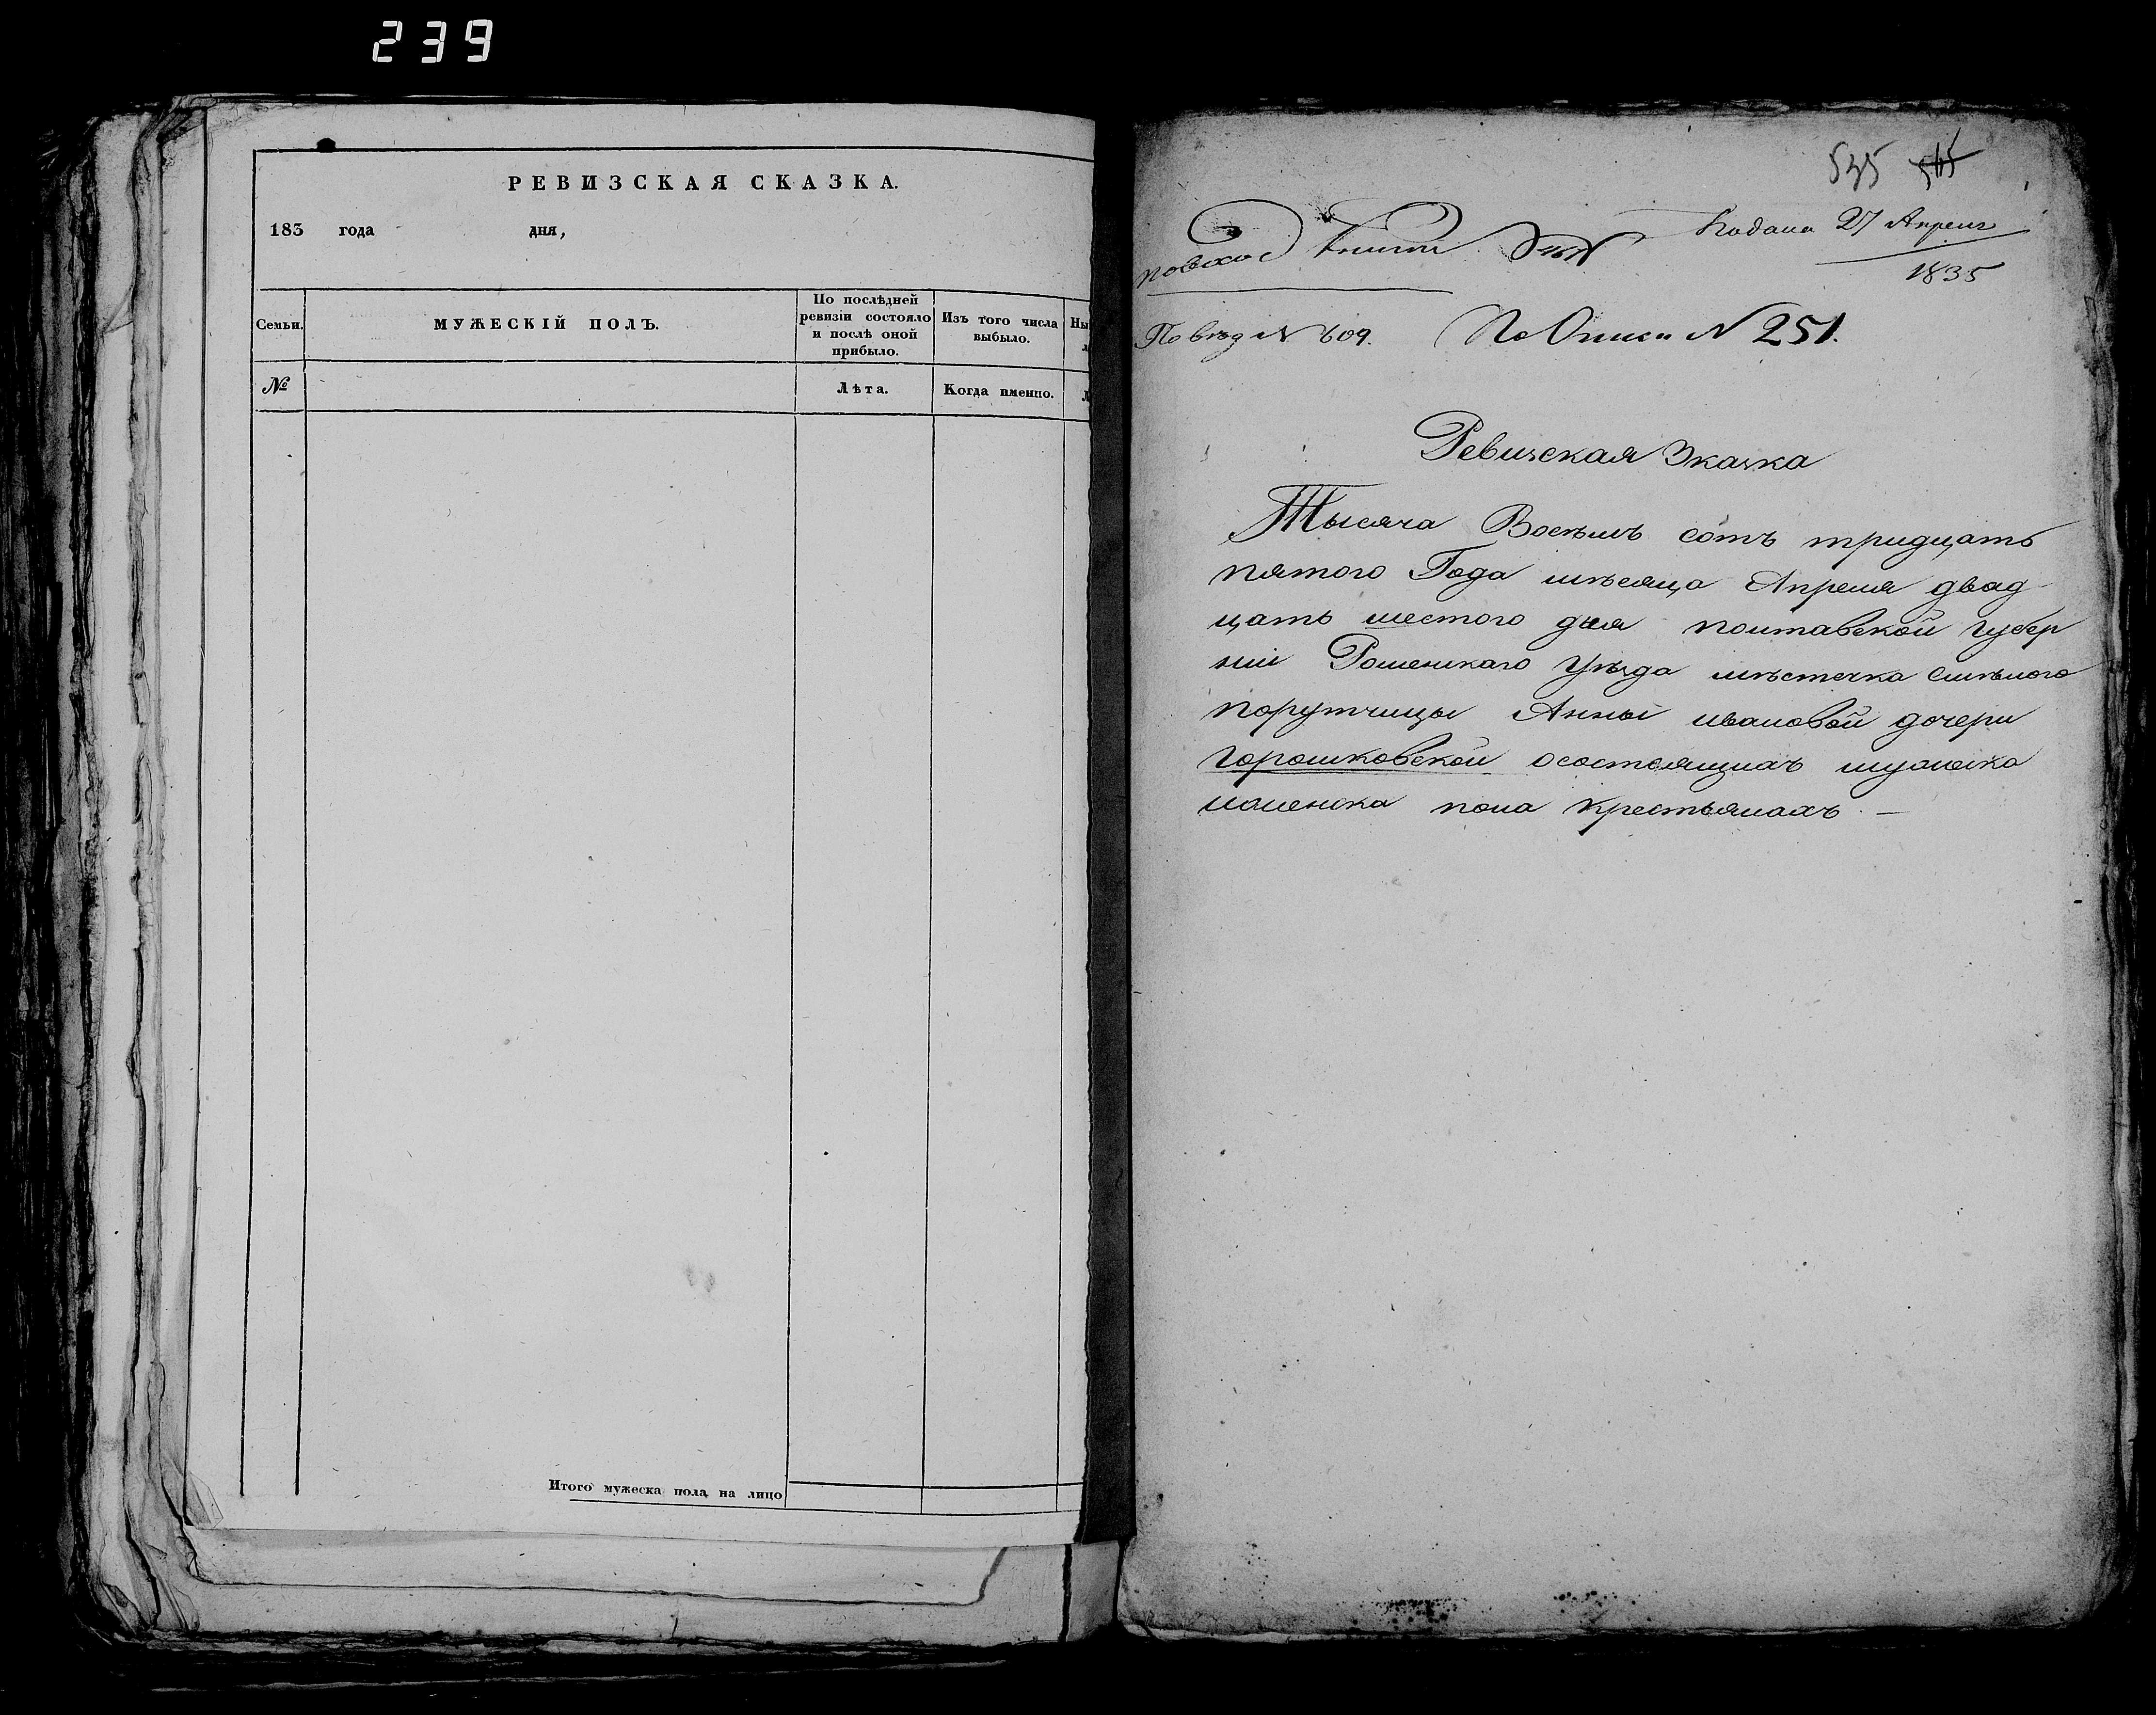 239
РЕВИЗСКАЯ СКАЗКА.
183 года дня,
Семьи.
МУЖЕСКІЙ ПОЛЪ.
По послѣдней
ревизіи состояло
и послѣ оной
прибыло.
Изъ того числа
выбыло.
Ны
№
Лѣта.
Когда именно.
Итого мужеска пола на лицо
535 515
Подана 27 Апреля
1835
по вход книги
По вход № 609. По Описи № 251.
Ревизская Зказка
Тысяча Восѣмъ сотъ тридцать
пятого Года мѣсяца Апреля двад
цать шестого дня полтавской губер
ніи Роменскаго уѣзда мѣстечка смѣлого
порутчицы Анны ивановой дочери
горошковской осостоящихъ мужеска
иженска пола крестьянахъ —